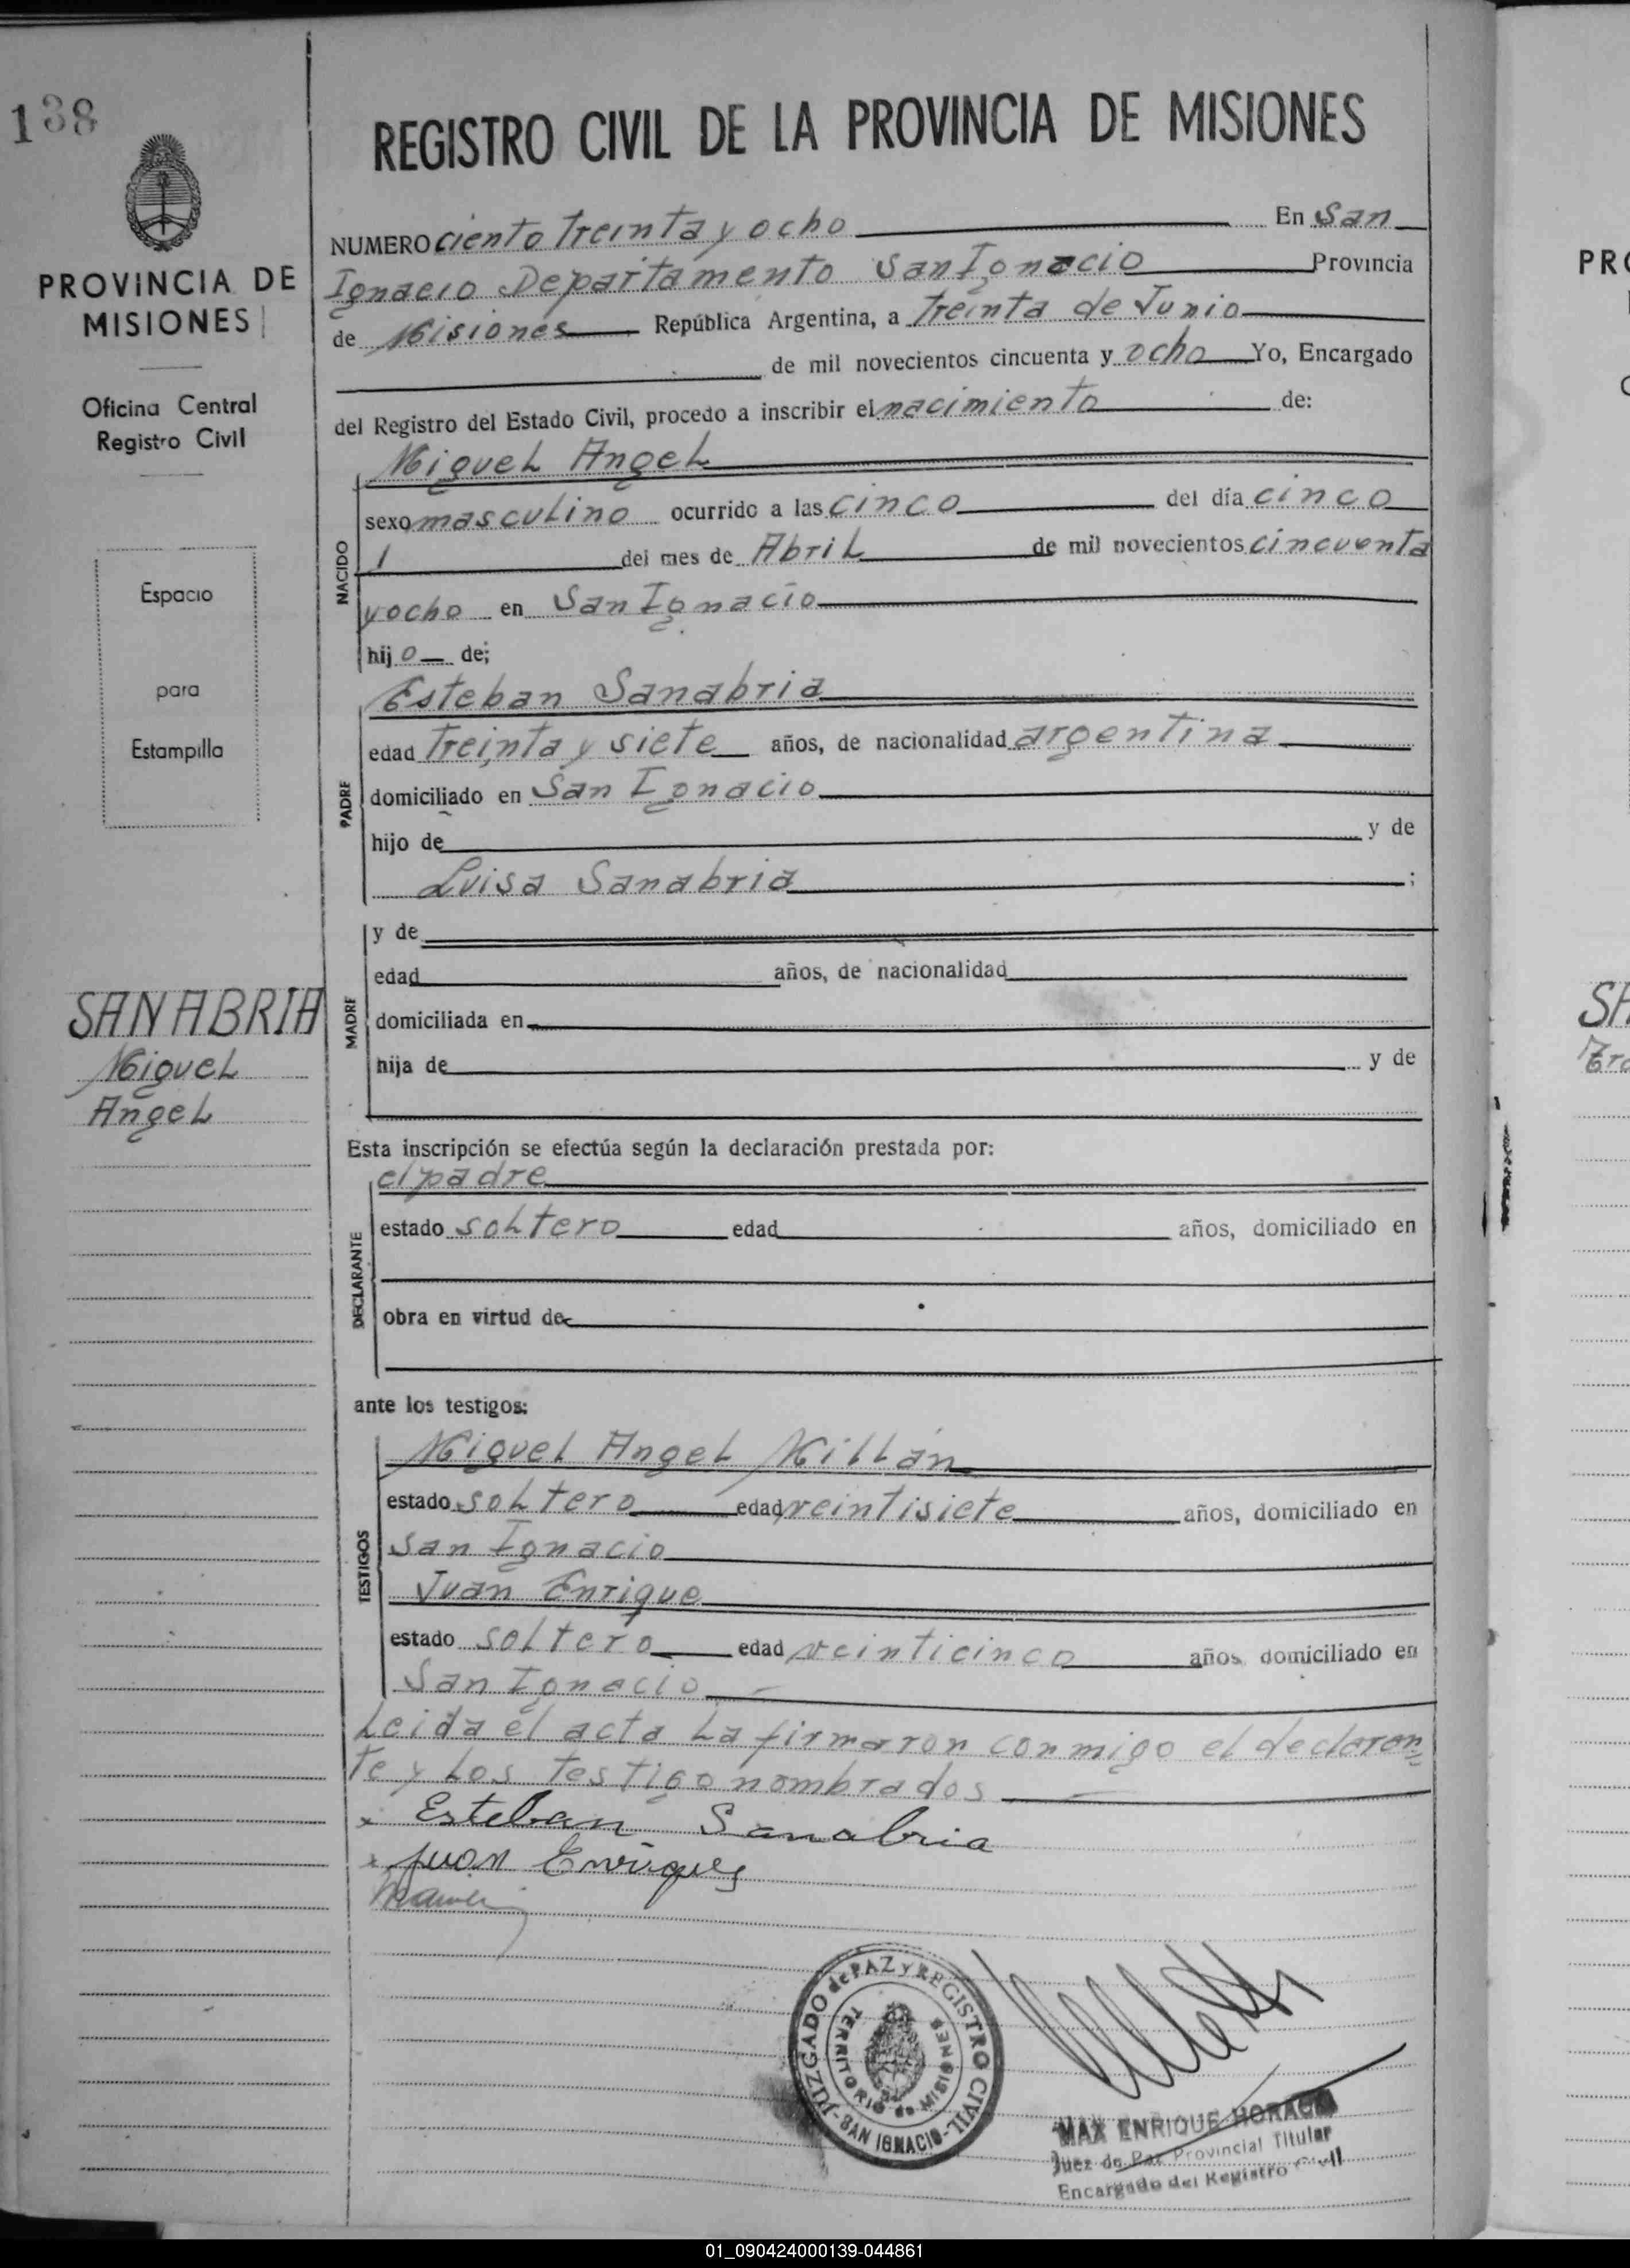 138
PROVINCIA DE
MISIONES
Oficina Central
Registro Civil
Espacio
para
Estampilla
SANABRIA
Miguel
Angel
REGISTRO CIVIL DE LA PROVINCIA DE MISIONES
NUMERO ciento treinta y ocho En San
Ignacio Departamento San Ignacio Provincia
de Misiones República Argentina, a treinta de Junio
de mil novecientos cincuenta y ocho Yo, Encargado
del Registro del Estado Civil, procedo a inscribir el nacimiento de:
Miguel Angel
NACIDO
sexo masculino ocurrido a las cinco del día cinco
del mes de Abril de mil novecientos cincuenta
y ocho en San Ignacio
hijo de;
Esteban Sanabria
PADRE
edad treinta y siete años, de nacionalidad argentina
domiciliado en San Ignacio
hijo de y de
Luisa Sanabria ;
MADRE
y de
edad años, de nacionalidad
domiciliada en
hija de y de
Esta inscripción se efectúa según la declaración prestada por:
el padre
DECLARANTE
estado soltero edad años, domiciliado en
obra en virtud de
ante los testigos:
Miguel Angel Millán
TESTIGOS
estado soltero edad veintisiete años, domiciliado en
San Ignacio
Juan Enrique
estado soltero edad veinticinco años domiciliado en
San Ignacio
Leida el acta la firmaron conmigo el declaran=
te y los testigo nombrados
x Esteban Sanabria
x Juan Enriques
JUZGADO de PAZ y REGISTRO CIVIL
-SAN IGNACIO-
TERRITORIO de MISIONES
MAX ENRIQUE HORACIO
Juez de Paz Provincial Titular
Encargado del Registro Civil
PRO
SA
01_090424000139-044861